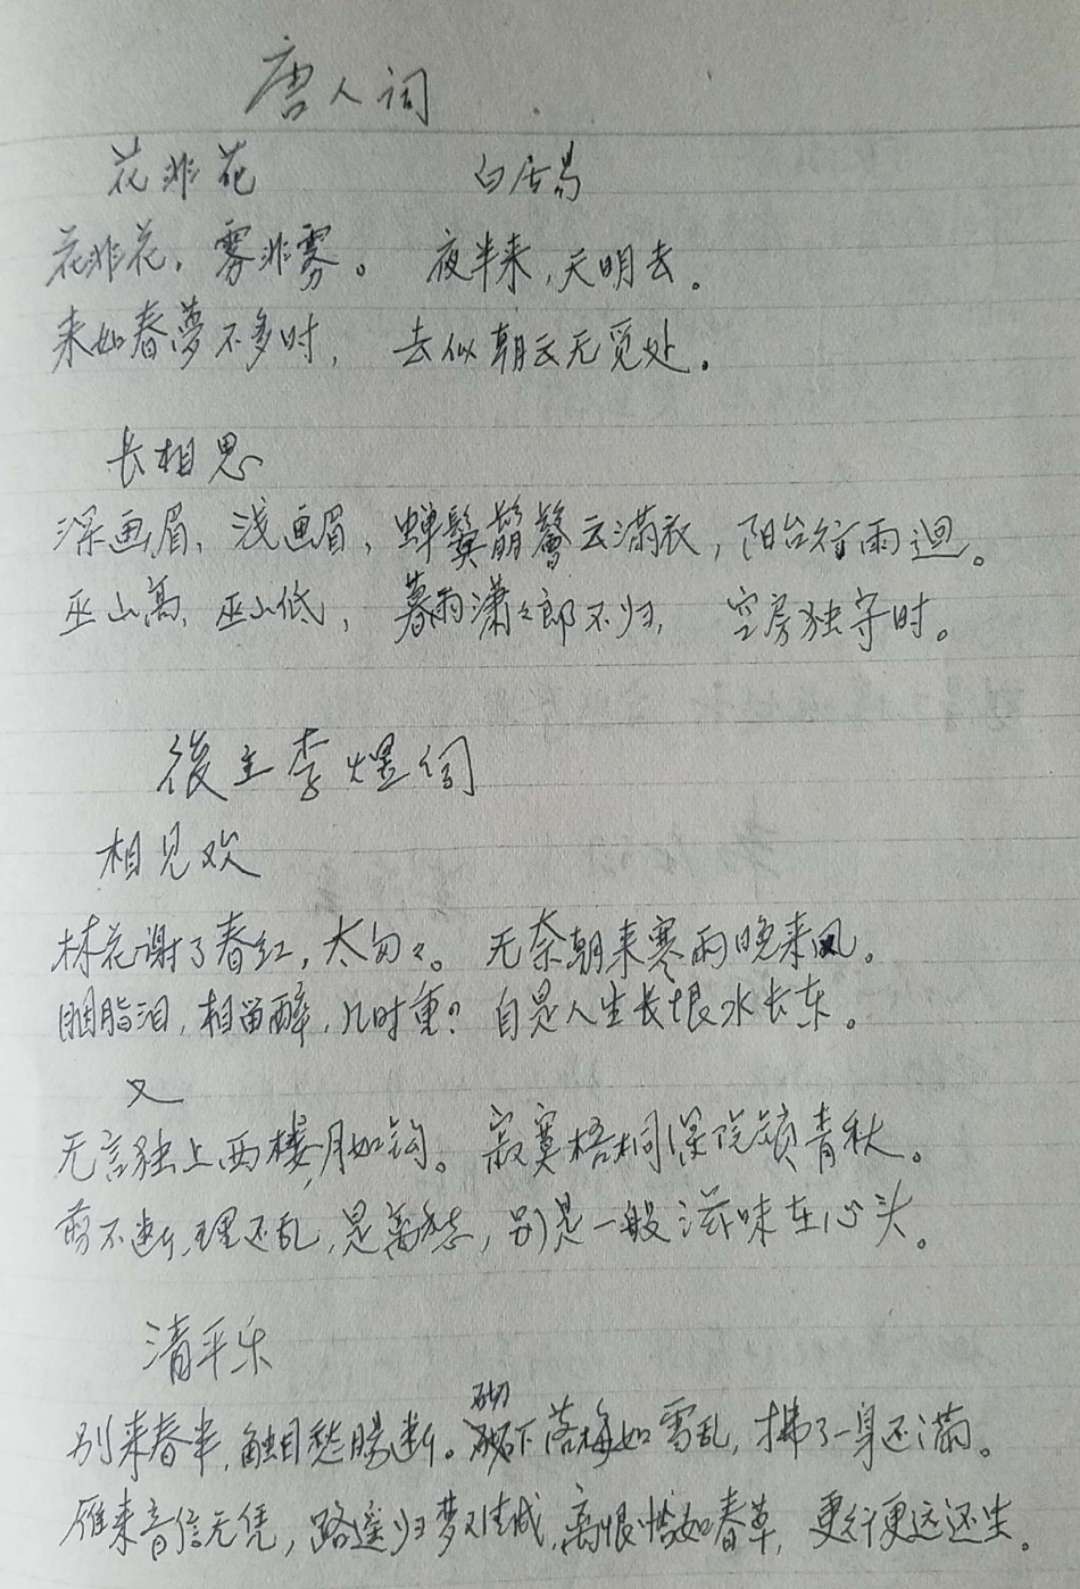 唐人词
花非花 白居易
花非花，雾非雾。 夜半来，天明去。
来如春夢不多时， 去似朝云无觅处。
长相思
深画眉，浅画眉，蝉鬓鬅鬙云满衣，阳台行雨迴。
巫山高，巫山低， 暮雨潇々郎不归， 空房独守时。
後主李煜词
相见欢
林花谢了春红，太匆々。 无奈朝来寒雨晚来风。
胭脂泪，相留醉，几时重？ 自是人生长恨水长东。
又
无言独上西楼，月如钩。 寂寞梧桐深院锁清秋。
剪不断，理还乱，是离愁，别是一般滋味在心头。
清平乐
别来春半，触目愁肠断。砌下落梅如雪乱，拂了一身还满。
雁来音信无凭，路遥归梦难成，离恨恰如春草，更行更远还生。